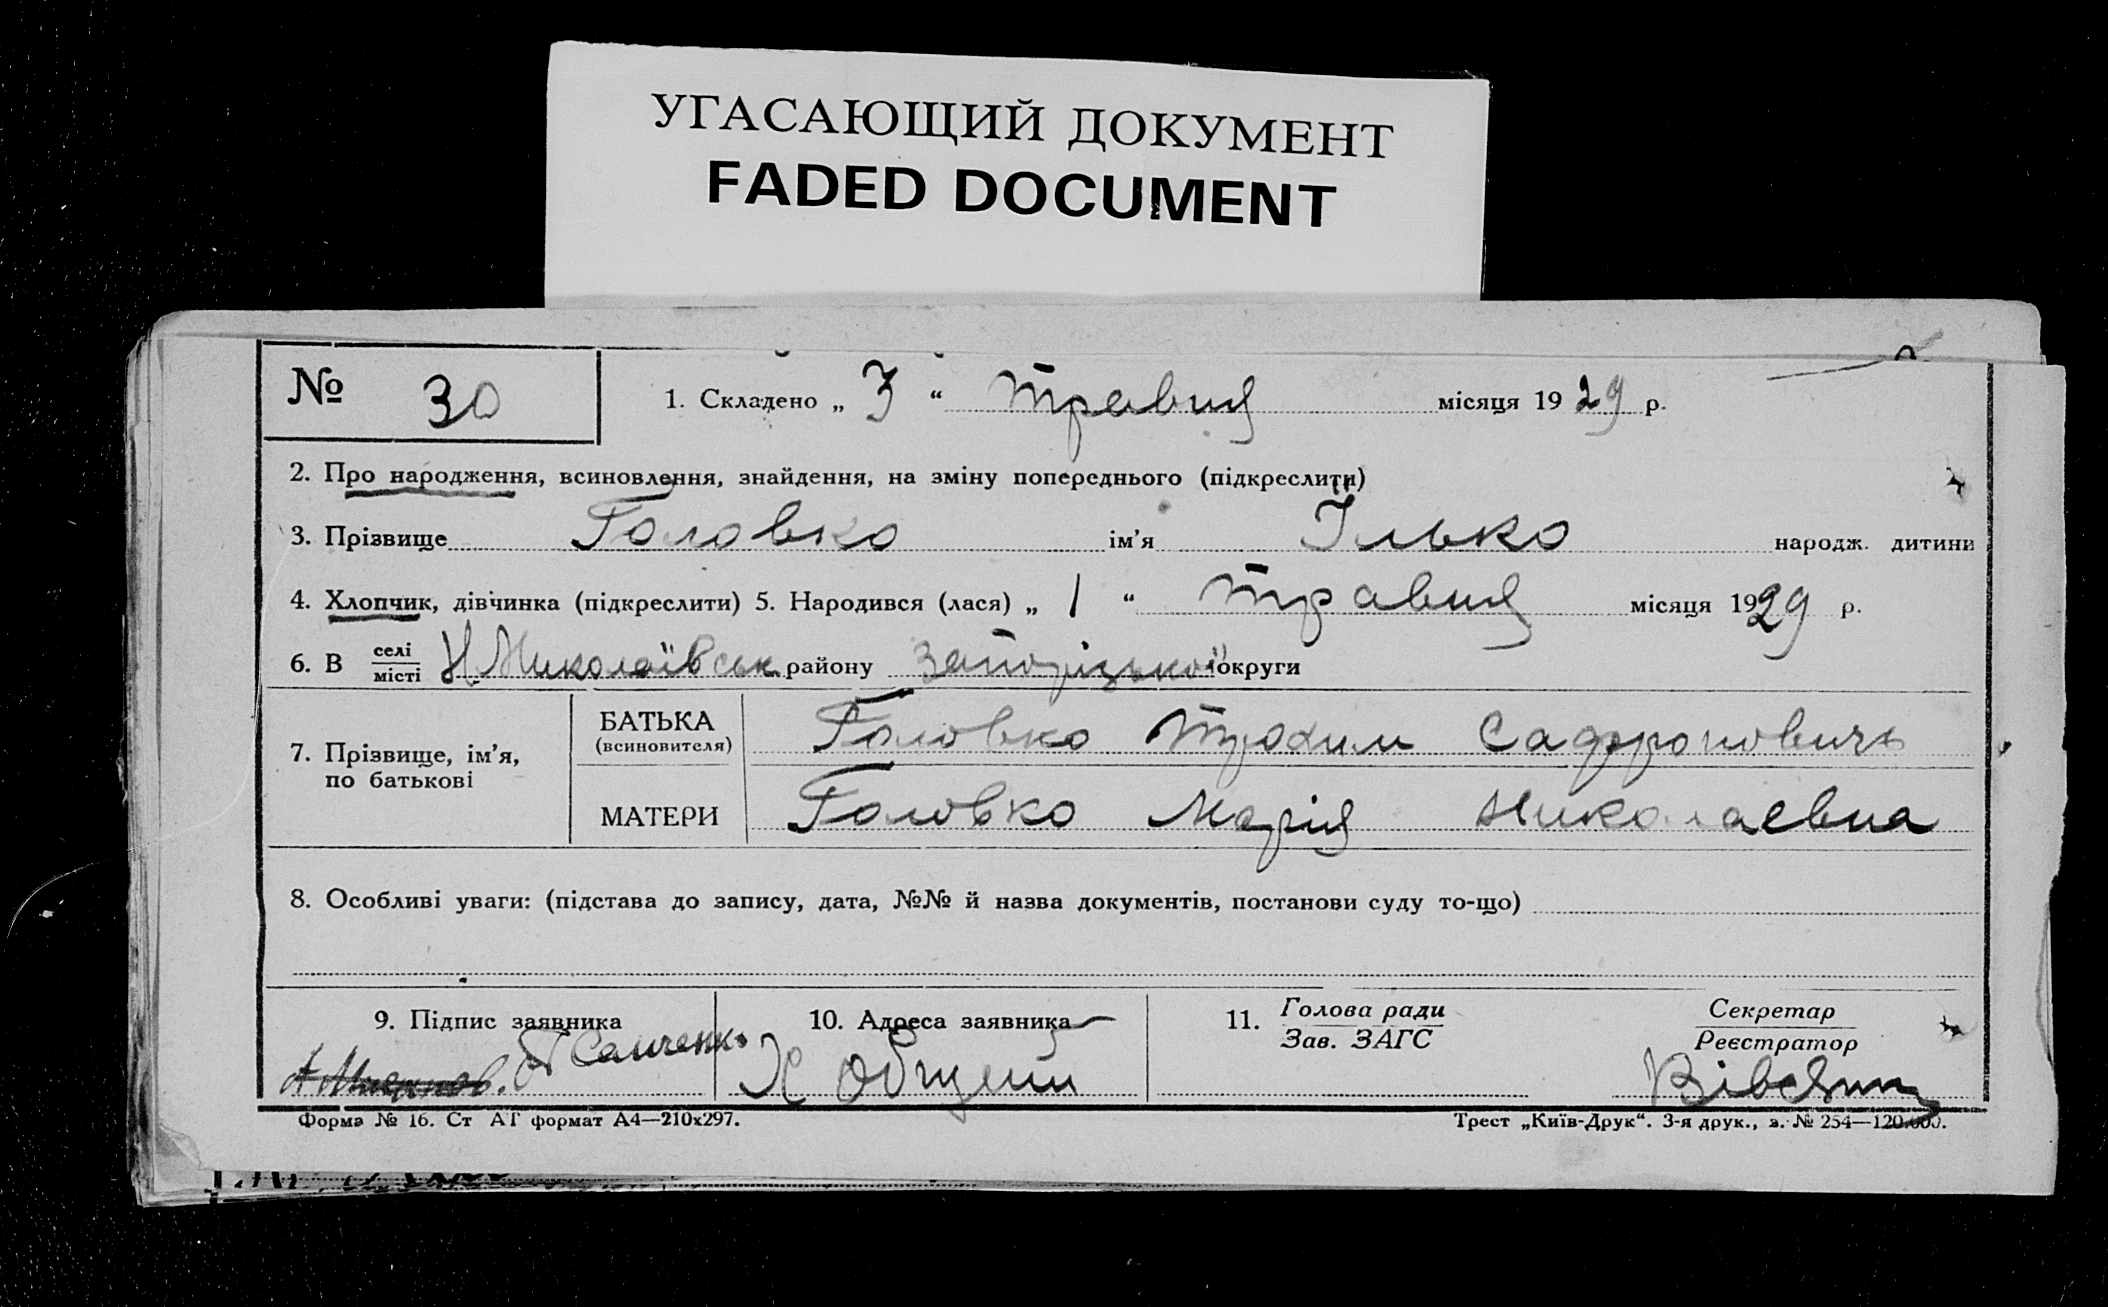 УГАСАЮЩИЙ ДОКУМЕНТ
FADED DOCUMENT
№ 30
1. Складено „ 3 “ травня місяця 1929 р.
2. Про народження, всиновлення, знайдення, на зміну попереднього (підкреслити)
3. Прізвище Головко ім’я Ілько народж. дитини
4. Хлопчик, дівчинка (підкреслити) 5. Народився (лася) „ 1 “ травня місяця 1929 р.
6. В селі місті Н Миколаївськ району Запорізької округи
7. Прізвище, ім’я, по батькові
БАТЬКА (всиновителя) Головко Трохим Сафронович
МАТЕРИ Головко Марія Николаевна
8. Особливі уваги: (підстава до запису, дата, №№ й назва документів, постанови суду то-що)
9. Підпис заявника
10. Адреса заявника
11. Голова ради Зав. ЗАГС
Секретар Реєстратор
Х Общий
Форма № 16. Ст АТ формат А4—210х297.
Трест „Київ-Друк“. 3-я друк., з. № 254—120.000.